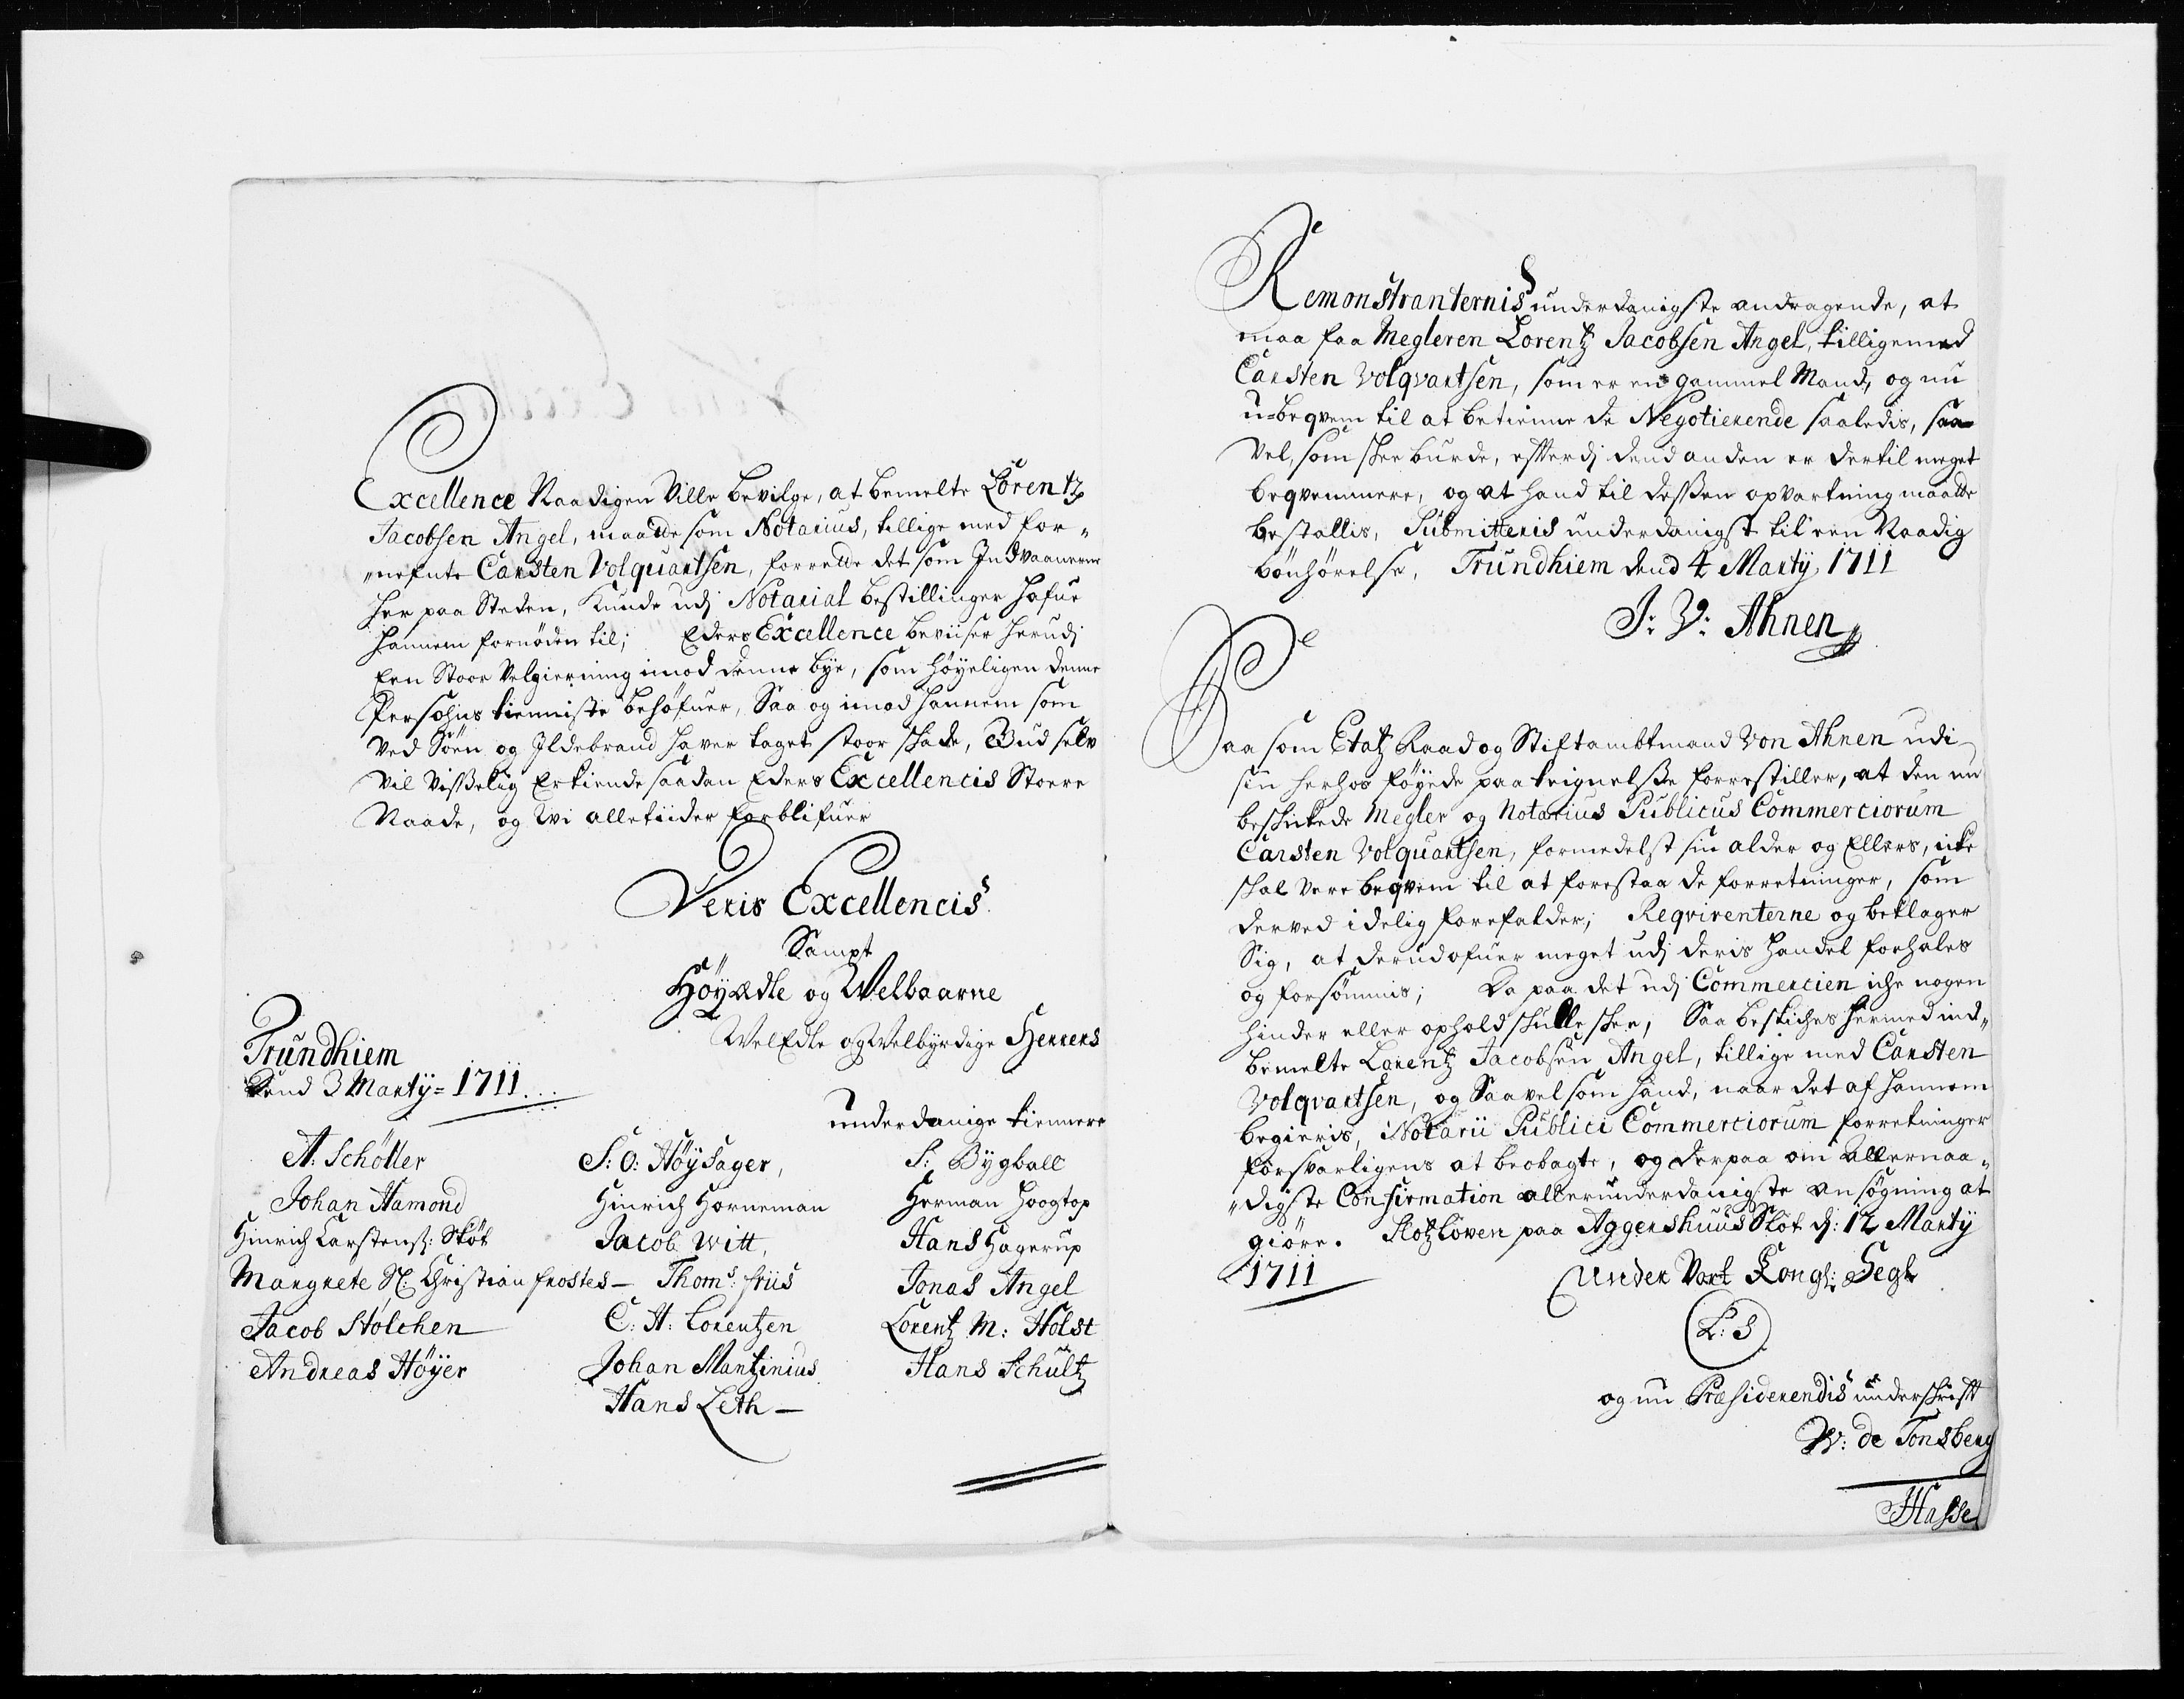 Excellence Naadigen Ville bevilge, at bemelte Lorentz
Jacobsen Angel, maatte som Notarius, tillige med for„
„nefnte Carsten Volquartsen, forrette det som Indvaanerne
her paa Steden, kunde udj Notarial bestillinger hafue
hannem fornøden til; Eders Excellence beviiser herudj
Een Stoor Velgierning imod denne bye, som høyeligen denne
Persohns tienniste behøfuer, Saa og imod hannem som
ved Söen og Ildebrand haver taget stoor skade, Gud selv
vil visselig Erkiende saadan Eders Excellencis Stoere
Naade, og Wi alletiider forblifuer
Deris Excellencis
Sampt
Höyædle og Welbaarne
WelEdle og Welbyrdige Herrers
Trundhiem
dend 3 Marty = 1711.
underdanige tiennere
A: Schöller
S: O: Höysager,
S: Bygball
Johan Hamond
Hinrich Horneman
Herman Hoogtop
Hinrich Karstens: Sköt
Jacob Witt,
Hans Hagerup
Margrete Sl: Christian frostes —
Thoms: friis
Jonas Angel
Jacob Stölchen
C: H: Lorentzen
Lorentz M: Holst
Andreas Höyer
Johan Mantzinius
Hans Schultz
Hans Leth —
Remonstranternis underdanigste andragende, at
maa faa Megleren Lorentz Jacobsen Angel, tilligemed
Carsten Volqvartsen, som er en gammel Mand, og nu
u=beqvem til at betienne de Negotierende saaledis, saa=
vel, som skee burde, efterdj dend anden er dertil meget
beqvemmere, og at hand til dessen opvartning maatte
bestallis, Submitteris underdanigst til een Naadig
bönhörelse, Trundhiem dend 4 Marty 1711
J: V: Ahnen
Saa som Etatz Raad og Stiftambtmand von Ahnen udi
sin herhos föyede paateignelsse forrestiller, at den nu
beskikede Megler og Notarius Publicus Commerciorum
Carsten Volquartsen, formedelst sin alder og Ellers, icke
skal vere beqvem til at forestaa de forretninger, som
derved idelig forefalder; Reqvirenterne og beklager
Sig, at derudofuer meget udj deris handel forhales
og forsömmis; Da paa det udj Commercien iche nogen
hinder eller ophold skulle skee, Saa beskiches hermed ind„
bemelte Lorentz Jacobsen Angel, tillige med Carsten
Volqvartsen, og Saavel som hand, naar det af hannem
begieris, Notarii Publici Commerciorum forretninger
forsvarligens at beobagte, og derpaa om allernaa„
„digste Confirmation allerunderdanigste ansögning at
giöre. Slotzloven paa Aggershuus Slot d: 12 Marty
1711
Under Vort Kongl: Segl
L: S
og nu Præsiderendis underskrift
W: de Tonsberg
Hasse